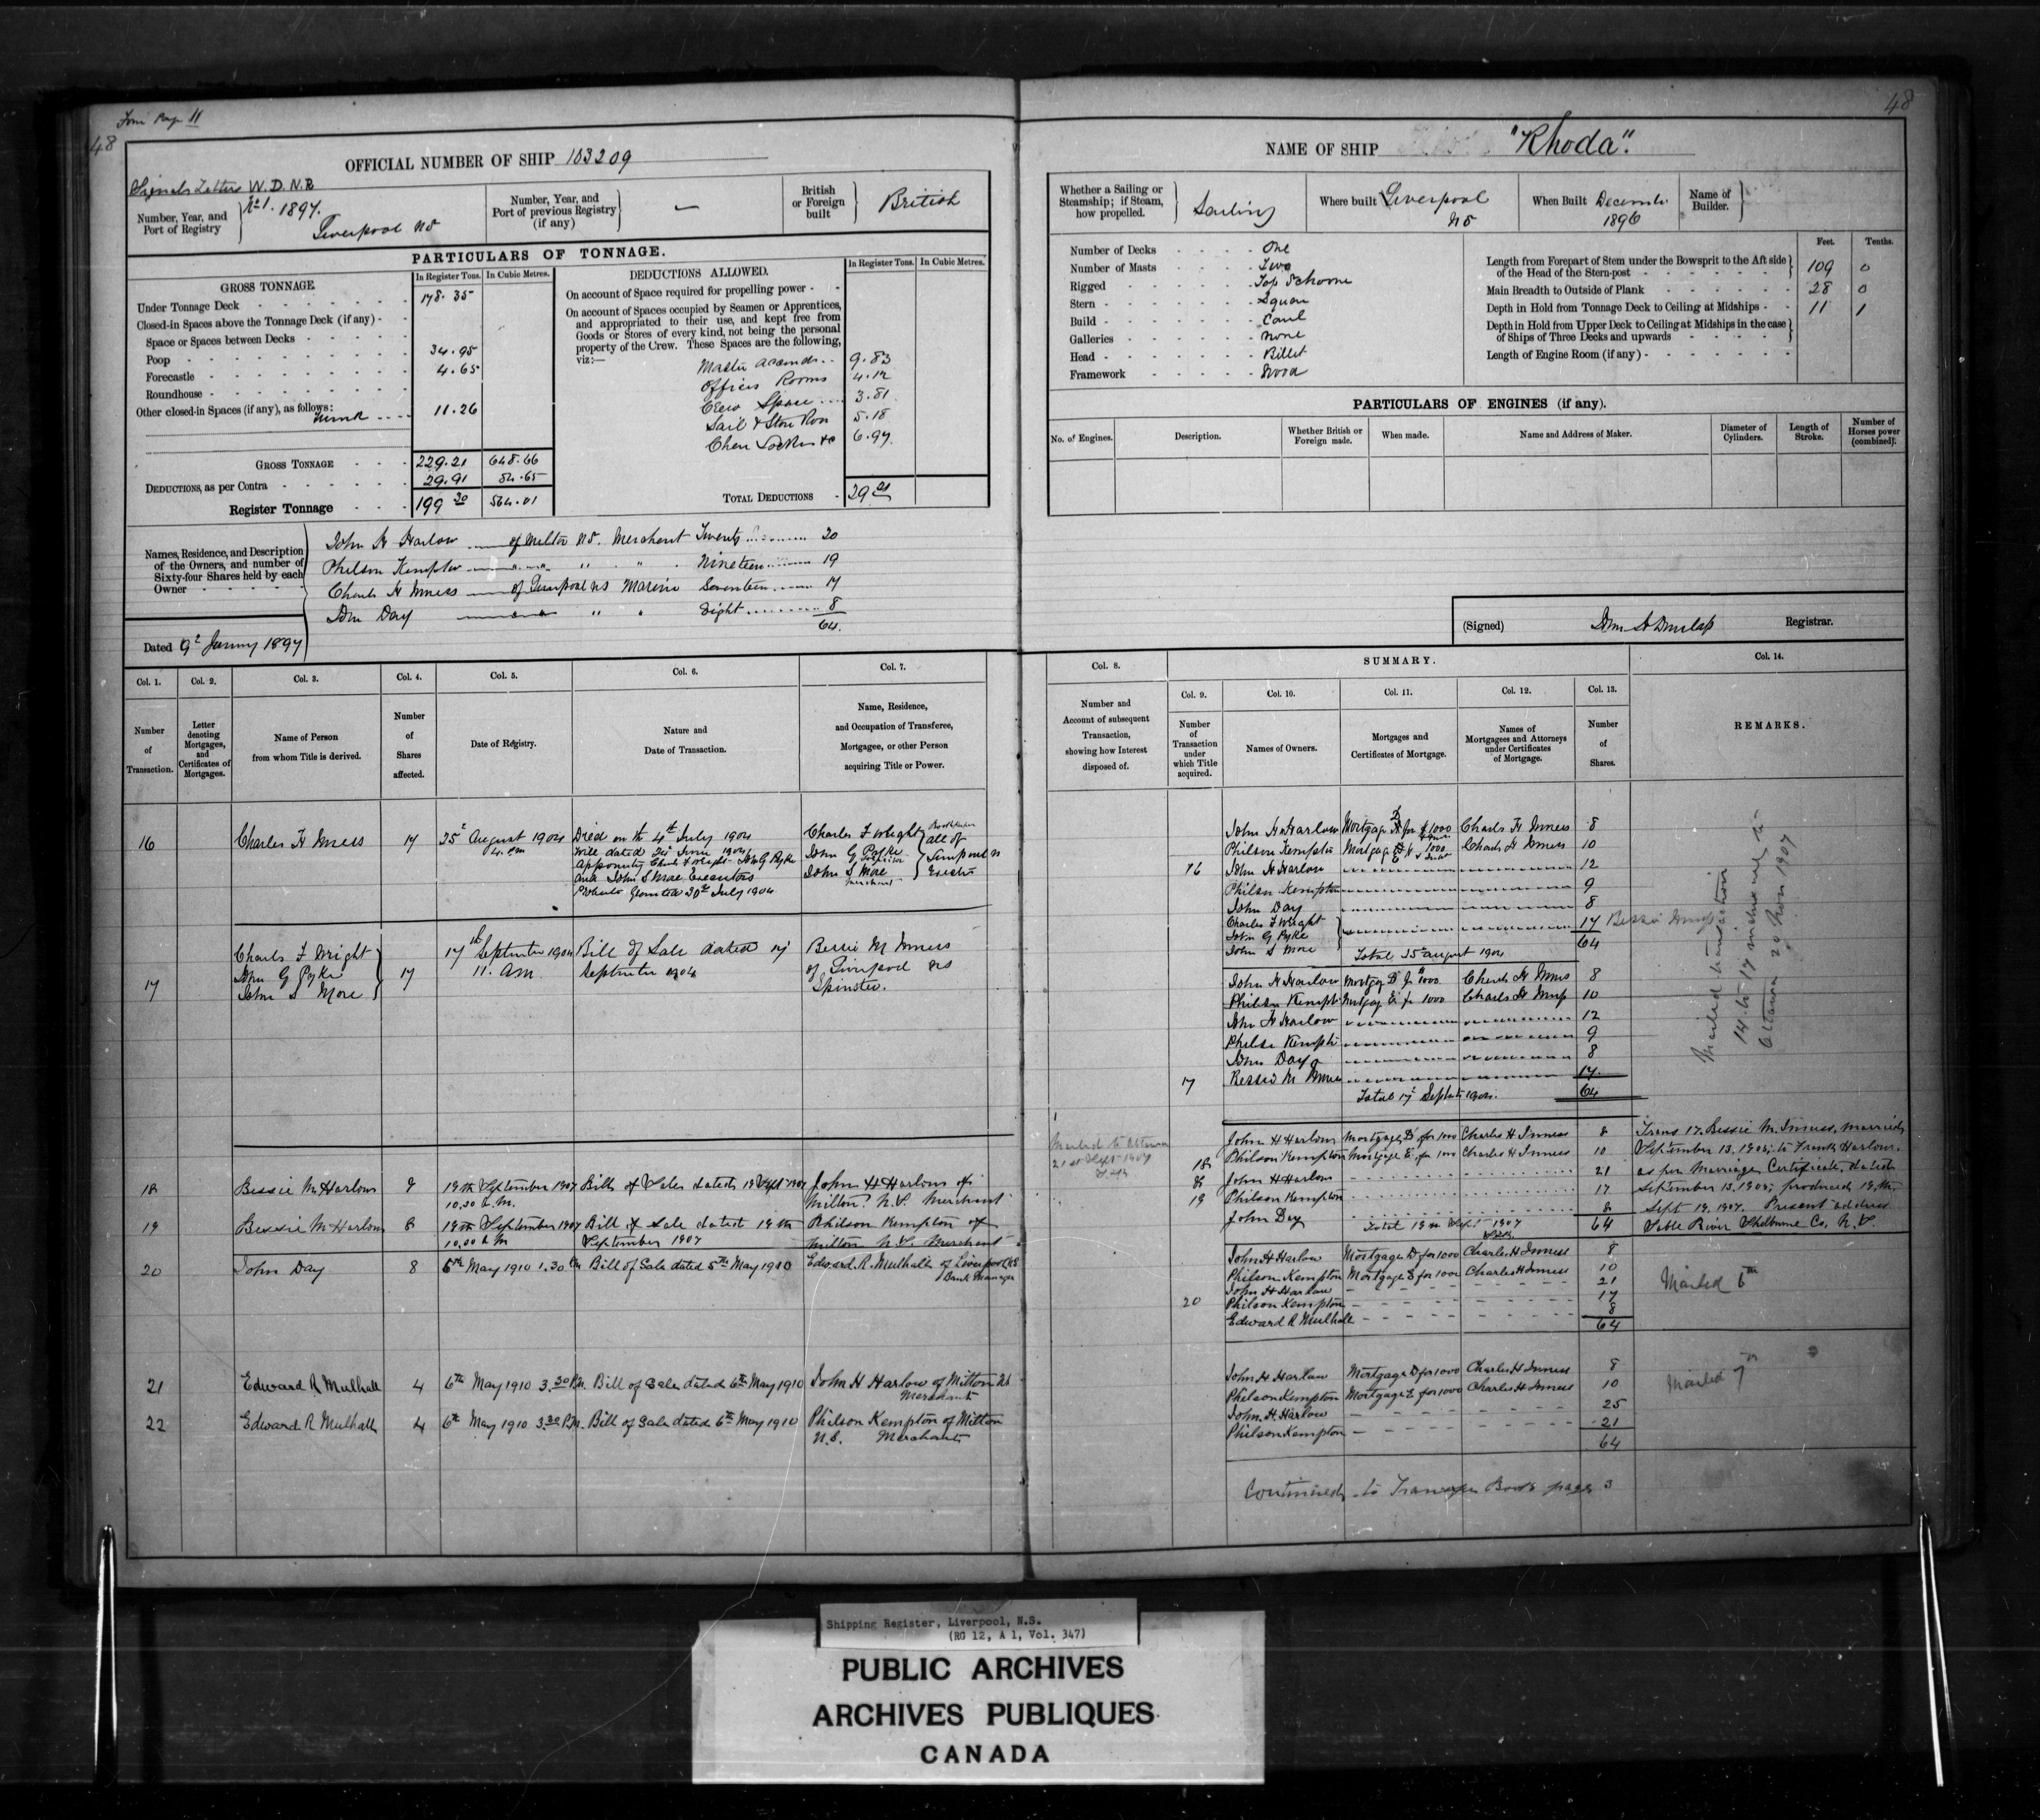 From Page 11
48
48
OFFICIAL NUMBER OF SHIP 103209
NAME OF SHIP "Rhoda".
Signals Letters W. D. N. B
Number, Year, and Port of Registry
No 1. 1897.
Liverpool NS
Number, Year, and Port of previous Registry (if any)
—
British or Foreign built
British
Whether a Sailing or Steamship; if Steam, how propelled.
Sailing
Where built Liverpool NS
When Built December 1896
Name of Builder.
PARTICULARS OF TONNAGE.
GROSS TONNAGE
In Register Tons.
In Cubic Metres.
Under Tonnage Deck 178.35
Closed-in Spaces above the Tonnage Deck (if any)
Space or Spaces between Decks
Poop 34.95
Forecastle 4.65
Roundhouse
Other closed-in Spaces (if any), as follows:
11.26
GROSS TONNAGE 229.21 648.66
DEDUCTIONS, as per Contra 29.91 84.65
Register Tonnage 199 30 564.01
DEDUCTIONS ALLOWED.
In Register Tons.
In Cubic Metres.
On account of Space required for propelling power
On account of Spaces occupied by Seamen or Apprentices, and appropriated to their use, and kept free from Goods or Stores of every kind, not being the personal property of the Crew. These Spaces are the following, viz:—
Master Accomdn 9.83
Officers Rooms 4.12
Crew Space 3.81
Sail & Store Room 5.18
Chain Locker &c 6.97
TOTAL DEDUCTIONS 29 91
Number of Decks One
Number of Masts Two
Rigged Top Schooner
Stern Square
Build Carvel
Galleries None
Head Billet
Framework Wood
Feet. Tenths.
Length from Forepart of Stem under the Bowsprit to the Aft side of the Head of the Stern-post 109 0
Main Breadth to Outside of Plank 28 0
Depth in Hold from Tonnage Deck to Ceiling at Midships 11 1
Depth in Hold from Upper Deck to Ceiling at Midships in the case of Ships of Three Decks and upwards
Length of Engine Room (if any)
PARTICULARS OF ENGINES (if any).
No. of Engines.
Description.
Whether British or Foreign made.
When made.
Name and Address of Maker.
Diameter of Cylinders.
Length of Stroke.
Number of Horses power (combined).
Names, Residence, and Description of the Owners, and number of Sixty-four Shares held by each Owner
John H Harlow of Milton NS. Merchant Twenty 20
Philson Kempton " " " " Nineteen 19
Charles H Inness of Liverpool NS Mariner Seventeen 17
John Day " " " " Eight 8
64.
Dated 9th January 1897
(Signed) Jhn A Dunlap Registrar.
Col. 1. Number of Transaction.
Col. 2. Letter denoting Mortgages, and Certificates of Mortgages.
Col. 3. Name of Person from whom Title is derived.
Col. 4. Number of Shares affected.
Col. 5. Date of Registry.
Col. 6. Nature and Date of Transaction.
Col. 7. Name, Residence, and Occupation of Transferee, Mortgagee, or other Person acquiring Title or Power.
Col. 8. Number and Account of subsequent Transaction, showing how Interest disposed of.
SUMMARY.
Col. 9. Number of Transaction under which Title acquired.
Col. 10. Names of Owners.
Col. 11. Mortgages and Certificates of Mortgage.
Col. 12. Names of Mortgagees and Attorneys under Certificates of Mortgage.
Col. 13. Number of Shares.
Col. 14. REMARKS.
16 Charles H Inness 17 25th August 1904 4 pm
Died on the 4th July 1904
Will dated 21st June 1904
appointing Charles F Wright John G Pyke
and John S More Executors
Probate Granted 30th July 1904
Charles F Wright
John G Pyke
John S More
merchant
all of Liverpool NS
Executors
17 Charles F Wright
John G Pyke
John S More
17 17th September 1904 11. AM
Bill of Sale dated 17 September 1904
Bessie M Inness
of Liverpool NS
Spinster.
18 Bessie M. Harlow 9 19th September 1907 10.30 A.M. Bill of Sale dated 19 Sept 1907 John H Harlow of Milton N.S. Merchant
19 Bessie M. Harlow 8 19th September 1907 10.30 A.M Bill of Sale dated 19th September 1907 Philson Kempton of Milton N.S. Merchant
20 John Day 8 6th May 1910 1.30 Pm Bill of Sale dated 5th May 1910 Edward R. Mulhall of Liverpool NS Bank Manager
21 Edward R Mulhall 4 6th May 1910 3.30 P.M. Bill of Sale dated 6th May 1910 John H Harlow of Milton NS Merchant
22 Edward R Mulhall 4 6th May 1910 3.30 P.M. Bill of Sale dated 6th May 1910 Philson Kempton of Milton N.S. Merchant
John H Harlow Mortgage D for $1000 Charles H Inness 8
Philson Kempton Mortgage E 1000 Charles H Inness 10
16 John H Harlow 12
Philson Kempton 9
John Day 8
Charles F Wright
John G Pyke
John S More
17
64
Total 25 August 1904
John H Harlow Mortgage D for 1000 Charles H Inness 8
Philson Kempton Mortgage E for 1000 Charles H Inness 10
John H Harlow 12
Philson Kempton 9
John Day 8
17 Bessie M Inness 17
Total 17 September 1904. 64
Mailed to Ottawa
21st Sept 1907
John H Harlow Mortgage D for 1000 Charles H Inness 8
Philson Kempton Mortgage E for 1000 Charles H Inness 10
18 John H Harlow 21
19 Philson Kempton 17
John Day 8
Total 19th Sept 1907 64
Trans 17. Bessie M. Inness, married
September 13. 1905, to Frank Harlow.
as per Marriage Certificate, dated
September 13. 1905, produced 19th
Sept 19. 1907. Present address
Sable River Shelburne Co. N.S.
John H Harlow Mortgage D for 1000 Charles H Inness 8
Philson Kempton Mortgage E for 1000 Charles H Inness 10
John H Harlow 21
Philson Kempton 17
20 Edward R Mulhall 8
64
Mailed 6th
John H Harlow Mortgage D for 1000 Charles H Inness 8
Philson Kempton Mortgage E for 1000 Charles H Inness 10
John H. Harlow 25
Philson Kempton 21
64
Mailed 7th
Mailed transaction
14 to 17 inclusively to
Ottawa 20 Nov 1907
Continued to Transfer Book page 3
Shipping Register, Liverpool, N.S.
(RG 12, A 1, Vol. 347)
PUBLIC ARCHIVES
ARCHIVES PUBLIQUES
CANADA